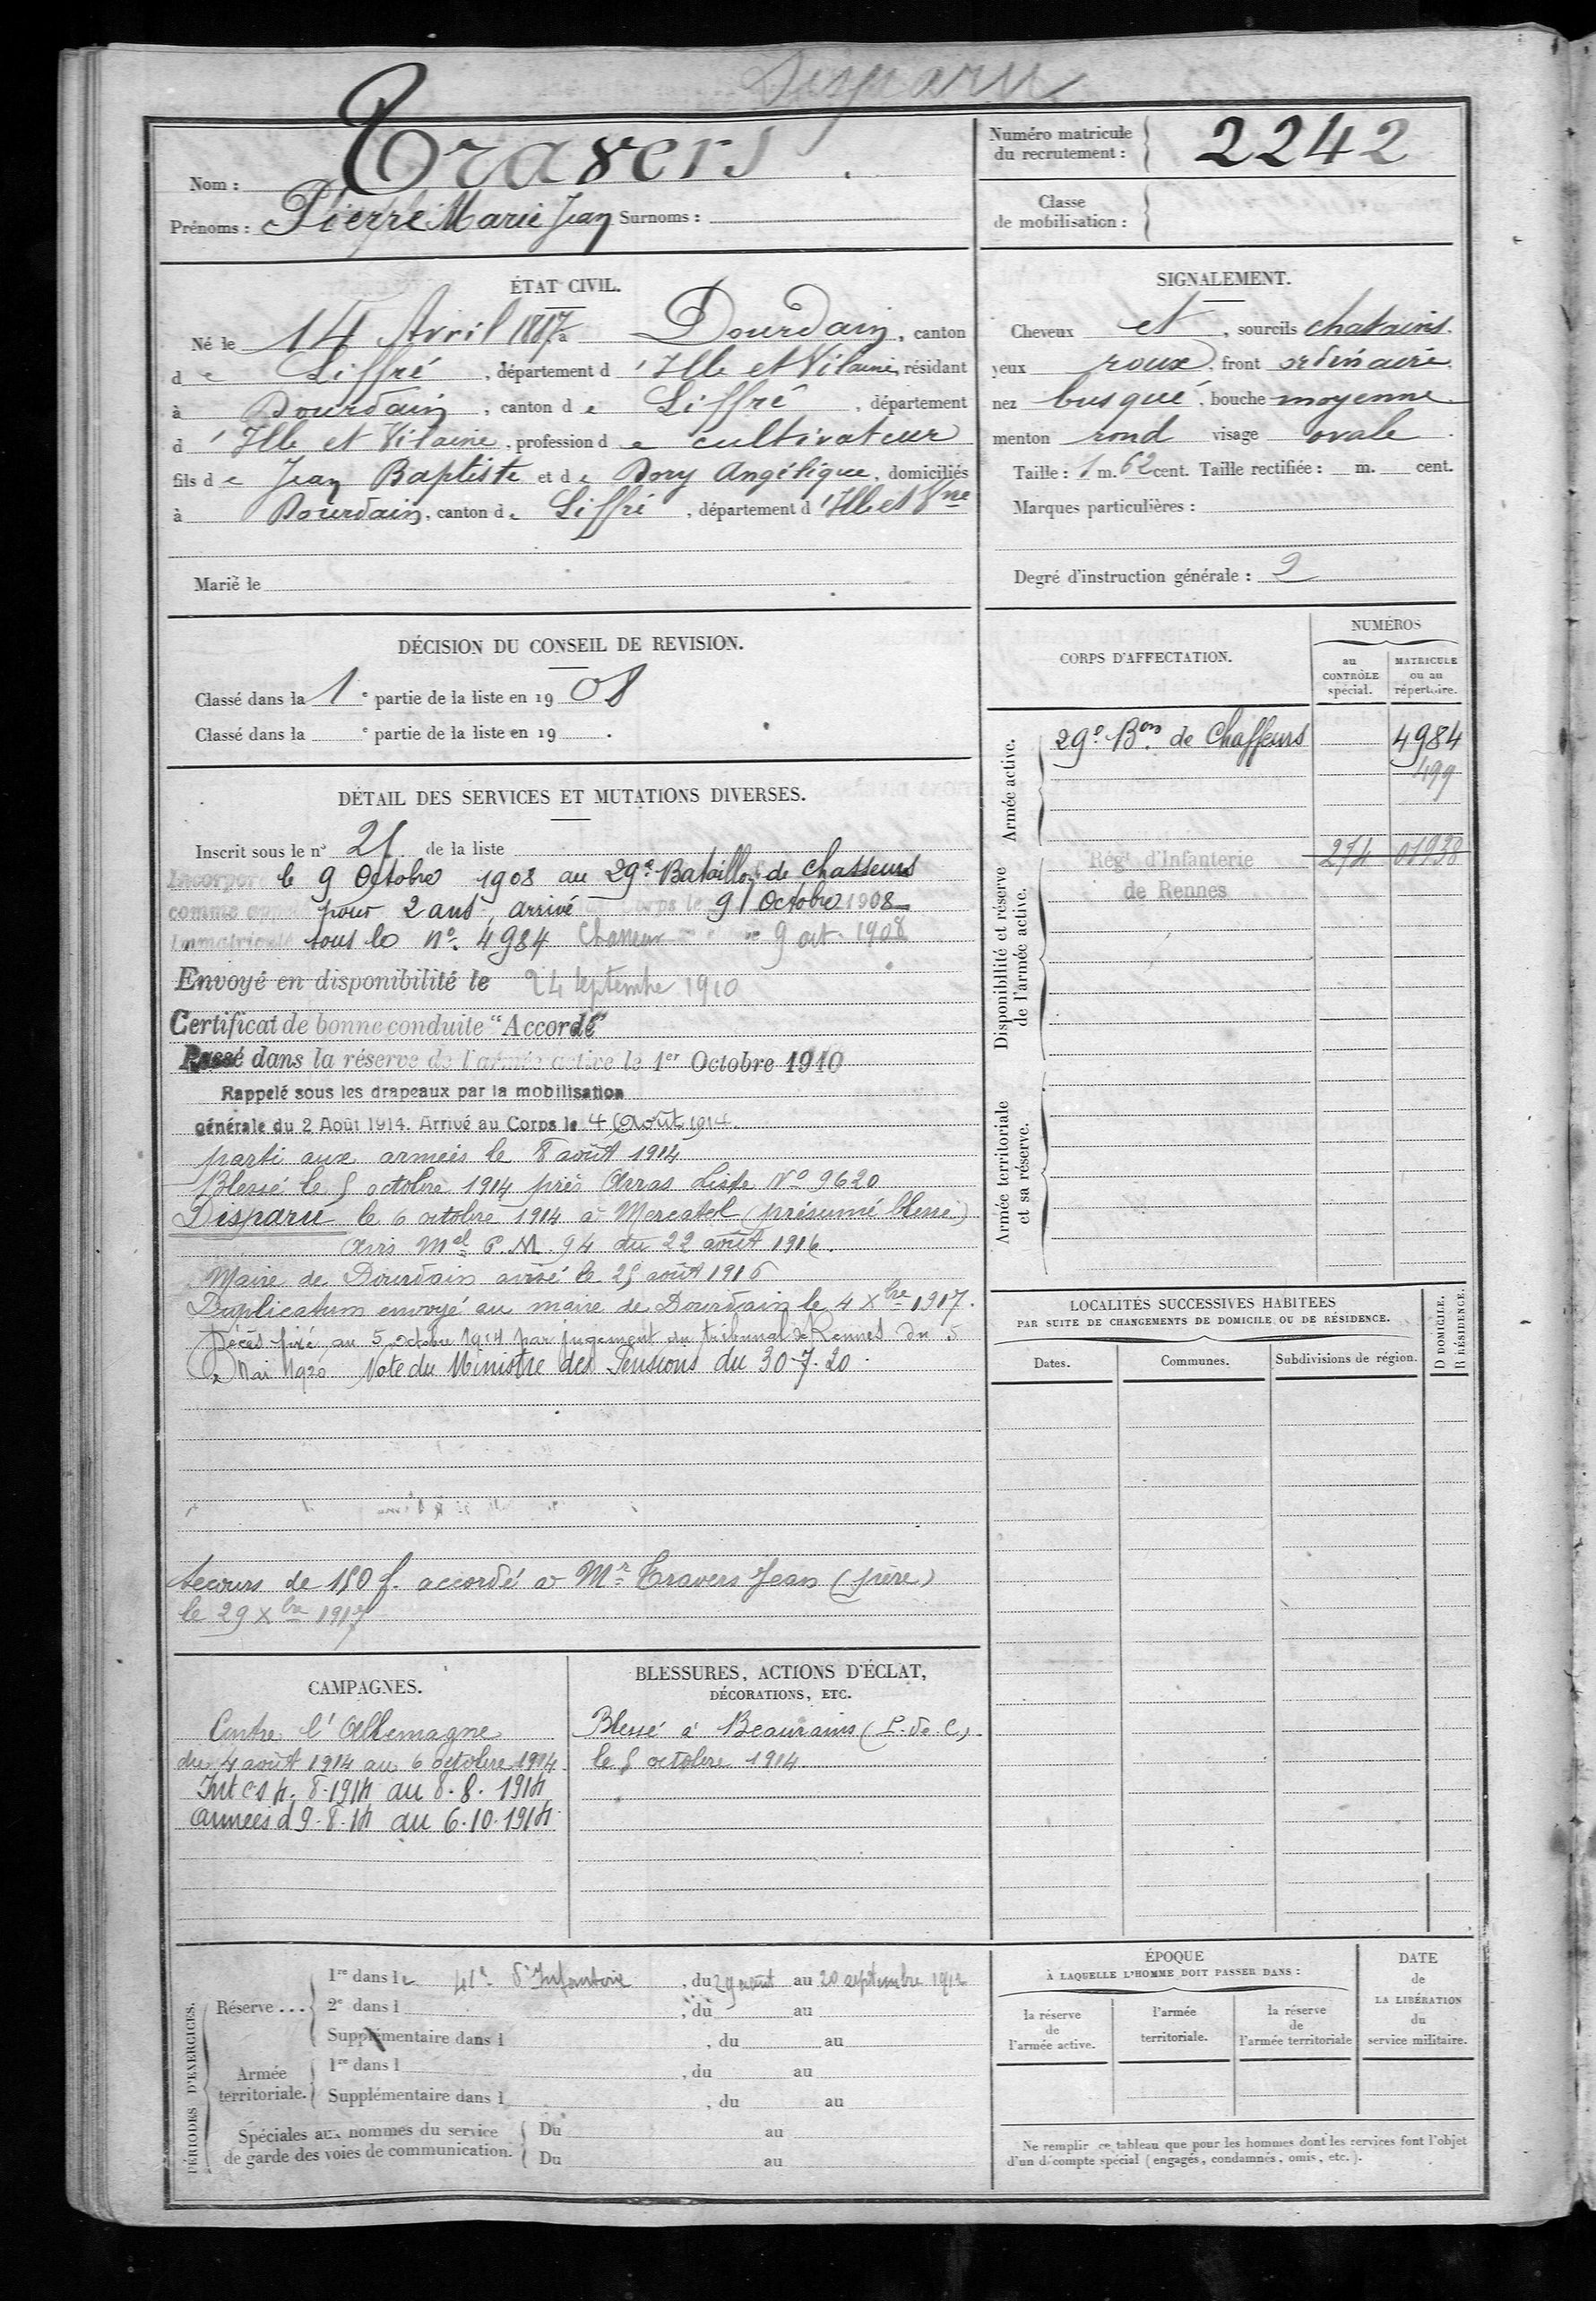 Disparu
Nom : Travers
Prénoms : Pierre Marie Jean Surnoms :
Numéro matricule
du recrutement : 2242
Classe
de mobilisation :
ÉTAT CIVIL.
Né le 14 Avril 1887 à Dourdain, canton
de Liffré, département d'Ille et Vilaine, résidant
à Dourdain, canton de Liffré, département
d'Ille et Vilaine, profession de cultivateur
fils de Jean Baptiste et de Dory Angélique, domiciliés
à Dourdain, canton de Liffré, département d'Ille et Vne
Marié le
SIGNALEMENT.
Cheveux et, sourcils chatains.
yeux roux, front ordinaire,
nez busqué, bouche moyenne
menton rond visage ovale.
Taille : 1 m. 62 cent. Taille rectifiée : m. cent.
Marques particulières :
Degré d'instruction générale : 2
DÉCISION DU CONSEIL DE REVISION.
Classé dans la 1e partie de la liste en 1908
Classé dans la e partie de la liste en 19 .
DÉTAIL DES SERVICES ET MUTATIONS DIVERSES.
Inscrit sous le n° 21 de la liste
Incorporé le 9 Octobre 1908 au 29e Bataillon de Chasseurs
comme pour 2 ans, arrivé au Corps le 9 Octobre 1908
Immatriculé sous le No. 4984 Chasseur 9 oct. 1908
Envoyé en disponibilité le 24 septembre 1910
Certificat de bonne conduite "Accordé"
Passé dans la réserve de l'armée active le 1er Octobre 1910
Rappelé sous les drapeaux par la mobilisation
générale du 2 Août 1914. Arrivé au Corps le 4 Août 1914
parti aux armées le 8 août 1914
Blessé le 5 octobre 1914 près Arras Liste No 9620
Disparu le 6 octobre 1914 à Mercatel (présumé blessé)
Avis Mel P.M. 94 du 22 août 1916.
Maire de Dourdain avisé le 25 août 1916
Duplicatum envoyé au maire de Dourdain le 4 Xbre 1917.
Décès fixé au 5 octobre 1914 par jugement du tribunal de Rennes du 5
Mai 1920 Note du Ministre des Pensions du 30-7-20.
Secours de 150 f. accordé à Mr Travers Jean (père)
le 29 Xbre 1917
CORPS D'AFFECTATION.
NUMÉROS
au
CONTRÔLE
spécial.
MATRICULE
ou au
répertoire.
Armée active.
29e Bon de Chasseurs 4984
499
Disponibilité et réserve
de l'armée active.
Régt d'Infanterie 274 01938
de Rennes
Armée territoriale
et sa réserve.
LOCALITÉS SUCCESSIVES HABITEES
PAR SUITE DE CHANGEMENTS DE DOMICILE OU DE RÉSIDENCE.
Dates.
Communes.
Subdivisions de région.
D DOMICILE.
R RÉSIDENCE.
CAMPAGNES.
Contre l'Allemagne
du 4 août 1914 au 6 octobre 1914
Int CS 4.8-1914 au 8.8.1914
armées d 9-8-14 au 6.10.1914
BLESSURES, ACTIONS D'ÉCLAT,
DÉCORATIONS, ETC.
Blessé à Beaurains (P. de C.)
le 5 octobre 1914
PÉRIODES D'EXERCICES.
Réserve ...
1re dans le 41e d'Infanterie, du 29 août au 20 septembre 1912
2e dans l , du au
Supplémentaire dans l , du au
Armée
territoriale.
1re dans l , du au
Supplémentaire dans l , du au
Spéciales aux hommes du service
de garde des voies de communication.
Du au
Du au
ÉPOQUE
À LAQUELLE L'HOMME DOIT PASSER DANS :
la réserve
de
l'armée active.
l'armée
territoriale.
la réserve
de
l'armée territoriale
DATE
de
LA LIBÉRATION
du
service militaire.
Ne remplir ce tableau que pour les hommes dont les services font l'objet
d'un décompte spécial (engagés, condamnés, omis, etc.).